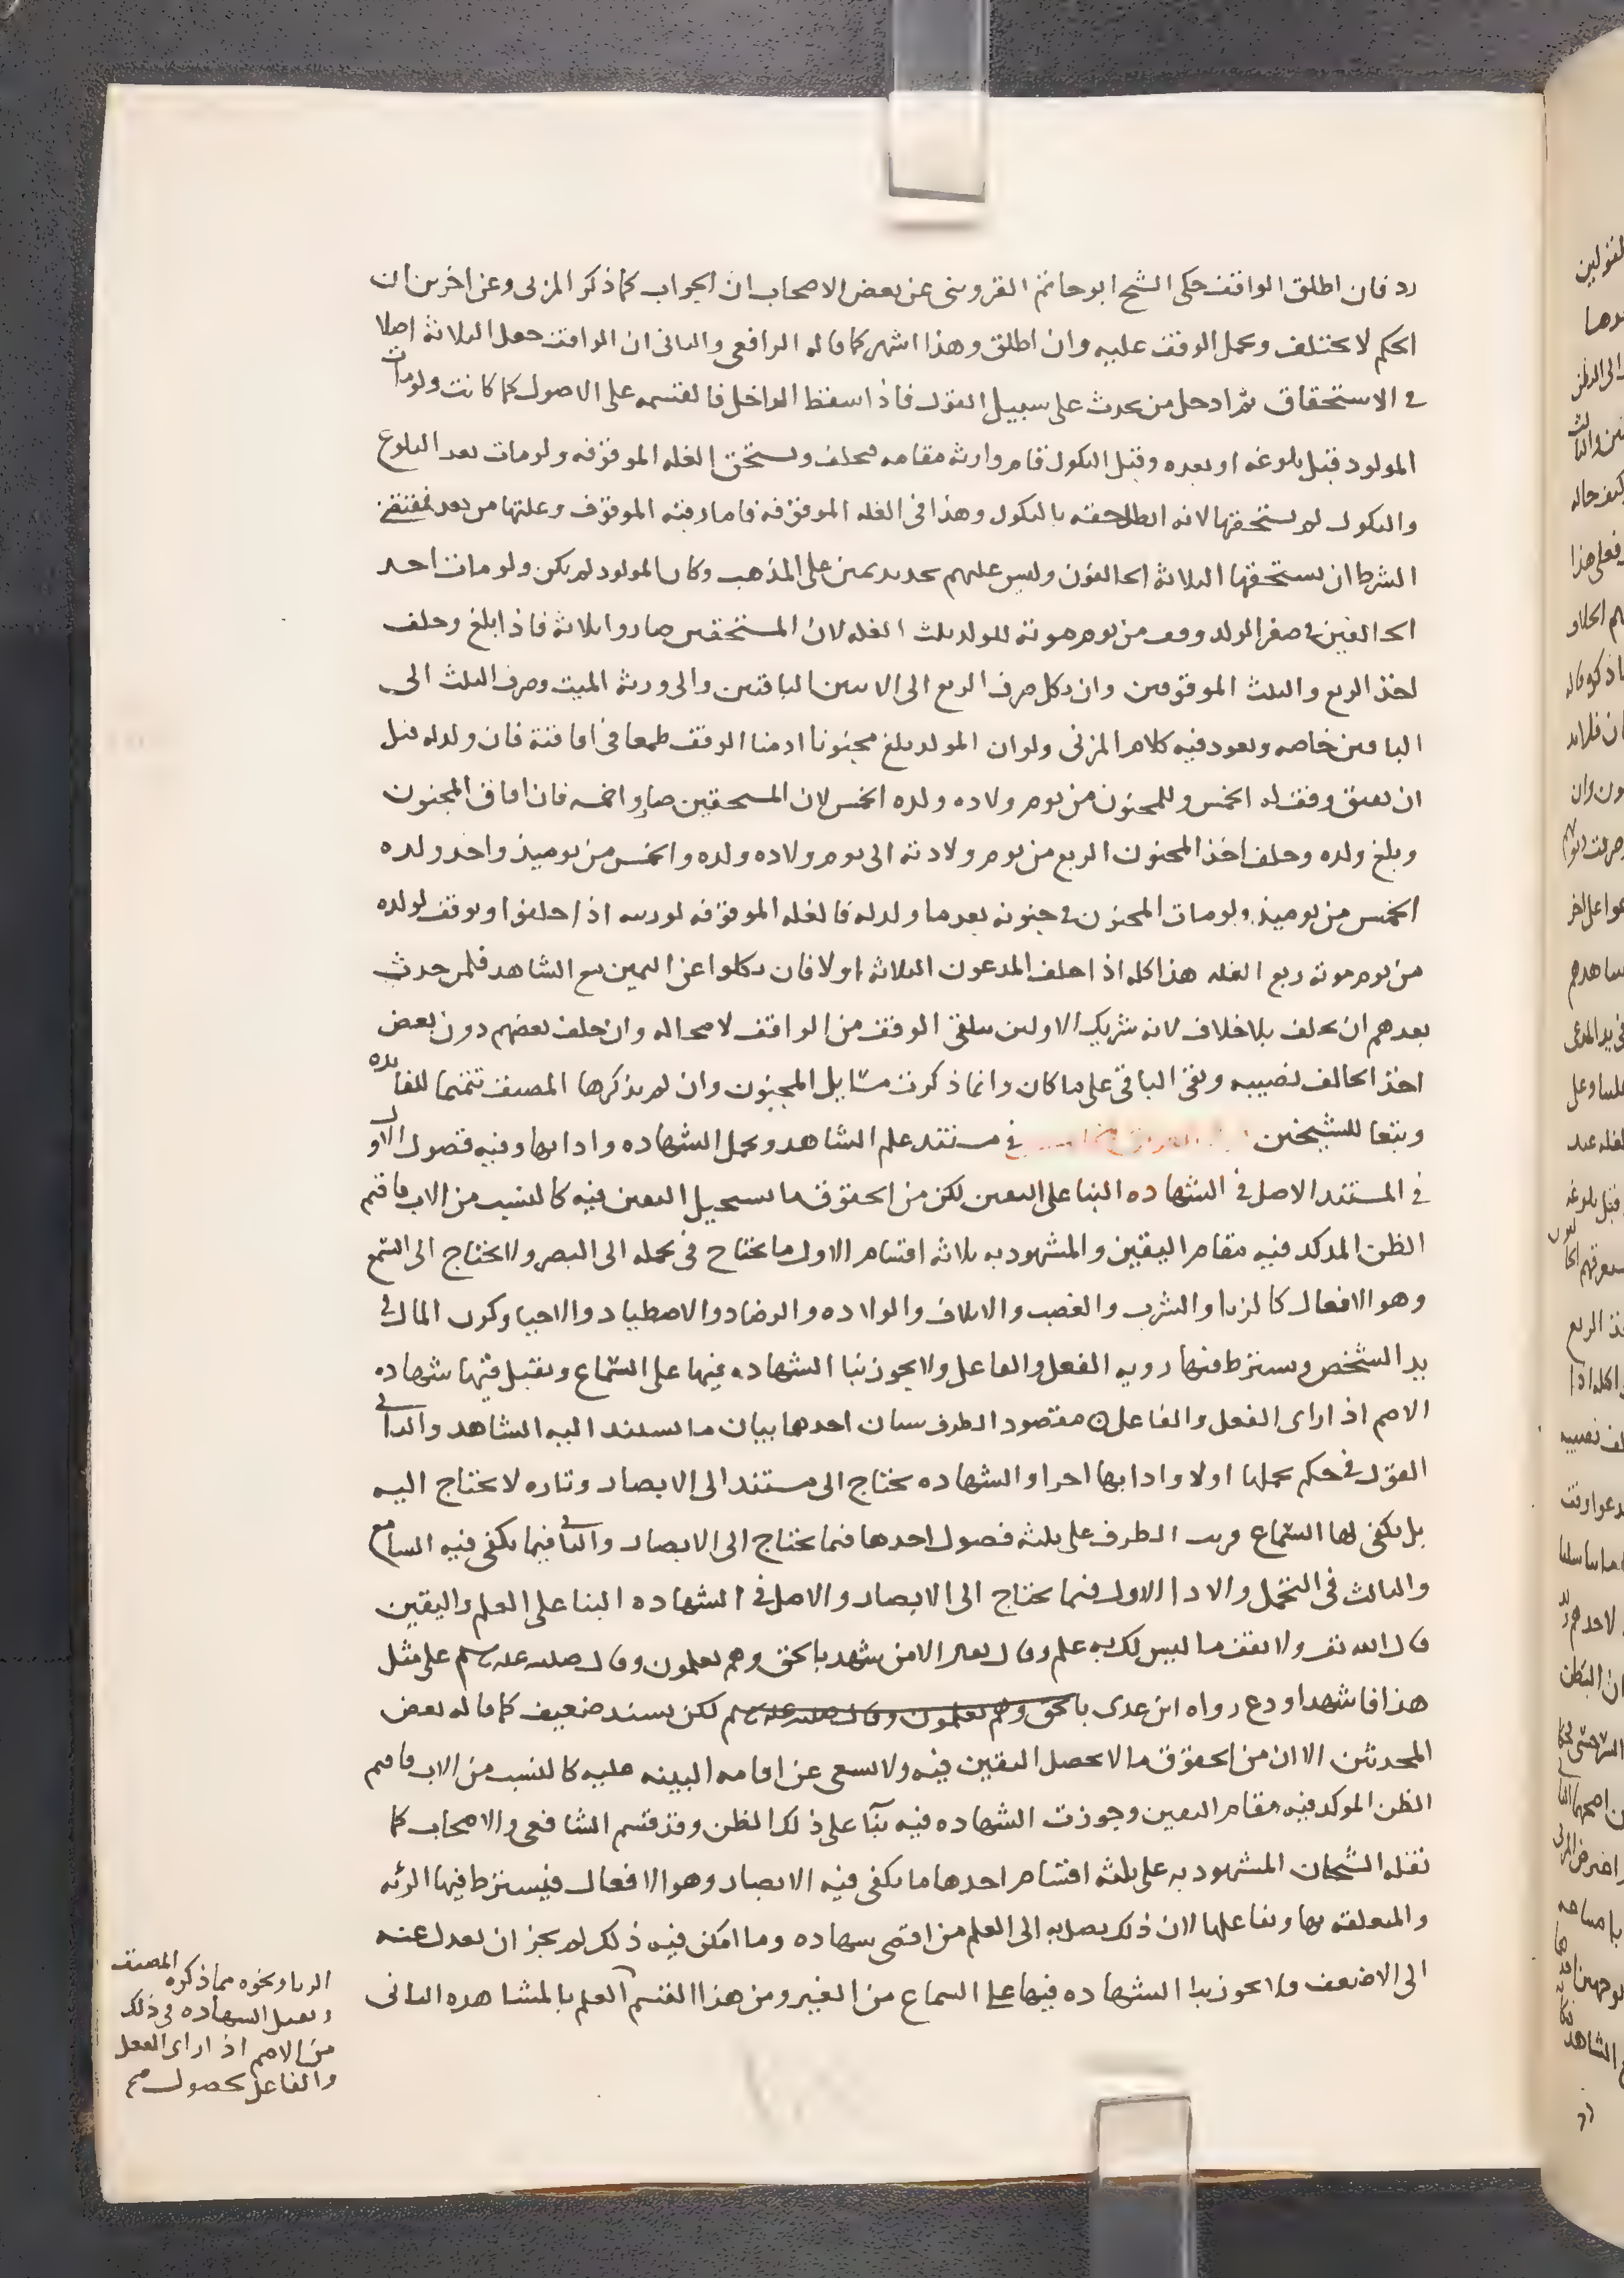 رد فان اطلق الواقف حكى الشيخ ابو حاتم القزوينى عن بعض الاصحاب ان الجواب كما ذكر المزنى وعن اخرين ان
الحكم لا يختلف ويحمل الوقف عليه وان اطلق وهذا اشهر كما قاله الرافعى والثانى ان الواقف جعل الثلاثة اصلا
فى الاستحقاق ثم ادخل من يحدث على سبيل العول فاذا سقط الداخل فالقسمه على الاصول كما كانت ولو مات
المولود قبل بلوغه او بعده وقبل النكول قام وارثه مقامه فيحلف ويستحق الغله الموقوفه ولو مات بعد البلوغ
والنكول لم يستحقها لانه ابطل حقه بالنكول وهذا فى الغله الموقوفه فاما رقبه الموقوف وغلتها من بعد فمقتضى
الشرط ان يستحقها الثلاثة الحالفون وليس عليهم تجديد يمين على المذهب وكان المولود لم يكن ولو مات احد
الحالفين فى صغر الولد وقف من يوم موته للولد ثلث الغله لان المستحقين صاروا ثلاثة فاذا بلغ وحلف
اخذ الربع والثلث الموقوفين وان نكل صرف الربع الى الاثنين الباقيين والى ورثه الميت وصرف الثلث الى
الباقيين خاصه ويعود فيه كلام المزنى ولو ان المولد بلغ مجنونا ادمنا الوقف طمعا فى افاقته فان ولد له قبل
ان يفيق وقف له الخمس وللمجنون من يوم ولاده ولده الخمس لان المستحقين صاروا خمسه فان افاق المجنون
وبلغ ولده وحلف اخذ المجنون الربع من يوم ولادته الى يوم ولاده ولده والخمس من يوميذ واخذ ولده
الخمس من يوميذ ولو مات المجنون فى جنونه بعد ما ولد له فالغله الموقوفه لورثته اذا حلفوا ويوقف لولده
من يوم موته ربع الغله هذا كله اذا حلف المدعون الثلاثه اولا فان نكلوا عن اليمين مع الشاهد فلمن حدث
بعدهم ان يحلف بلا خلاف لانه شريك الاولين يتلقى الوقف من الواقف لا محاله وان حلف بعضهم دون بعض
اخذ الحالف نصيبه وبقى الباقى على ما كان وانما ذكرت مسايل المجنون وان لم يذكرها المصنف تتميما للفايده
وتبعا للشيخين فى مستند علم الشاهد وتحمل الشهاده وادايها وفيه فصول الاول
فى المستند الاصل فى الشهاده البنا على اليقين لكن من الحقوق ما يستحيل اليقين فيه كالنسب من الاب فاقيم
الظن الموكد فيه مقام اليقين والمشهود به ثلاثه اقسام الاول ما يحتاج فى تحمله الى البصر ولا يحتاج الى السمع
وهو الافعال كالزنا والشرب والغصب والاتلاف والولاده والرضاع والاصطياد والاحيا وكون المال فى
يد الشخص ويشترط فيها رويه الفعل والفاعل ولا يجوز بنا الشهاده فيها على السماع وتقبل فيها شهاده
الاصم اذا راى الفعل والفاعل مقصود الطرف بيان احدها بيان ما يستند اليه الشاهد والثانى
القول فى حكم تحملها اولا وادايها اخرا والشهاده تحتاج الى مستند الى الابصار وتاره لا تحتاج اليه
بل يكفى لها السماع الطرف على ثلثه فصول احدها فيما يحتاج الى الابصار والثانى فيما يكفى فيه السماع
والثالث فى التحمل والادا الاول فيما يحتاج الى الابصار والاصل فى الشهاده البنا على العلم واليقين
قال الله تعالى ولا تقف ما ليس لك به علم وقال تعالى الا من شهد بالحق وهم يعلمون وقال صلى الله عليه وسلم على مثل
هذا فاشهد او دع رواه ابن عدى بالحق وهم يعلمون وقال صلى الله عليه وسلم لكن بسند ضعيف كما قاله بعض
المحدثين الا ان من الحقوق ما لا يحصل اليقين فيه ولا يستغنى عن اقامه البينه عليه كالنسب من الاب فاقيم
الظن الموكد فيه مقام اليقين وجوزت الشهاده فيه بنآ على ذلك الظن وقد قسم الشافعى والاصحاب كما
نقله الشيخان المشهود به على ثلثه اقسام احدها ما يكفى فيه الابصار وهو الافعال فيشترط فيها الرؤيه
والمتعلقه بها وبفاعلها لان ذلك يصل به الى العلم من اقصى شهاده وما امكن فيه ذلك لم يجز ان يعدل عنه
الى الاضعف ولا يجوز بنا الشهاده فيها على السماع من الغير ومن هذا القسم العلم بالمشاهده الثانى
الزنا ونحوه مما ذكره المصنف
وتقبل الشهاده فى ذلك
من الاصم اذا راى الفعل
والفاعل لحصول صح